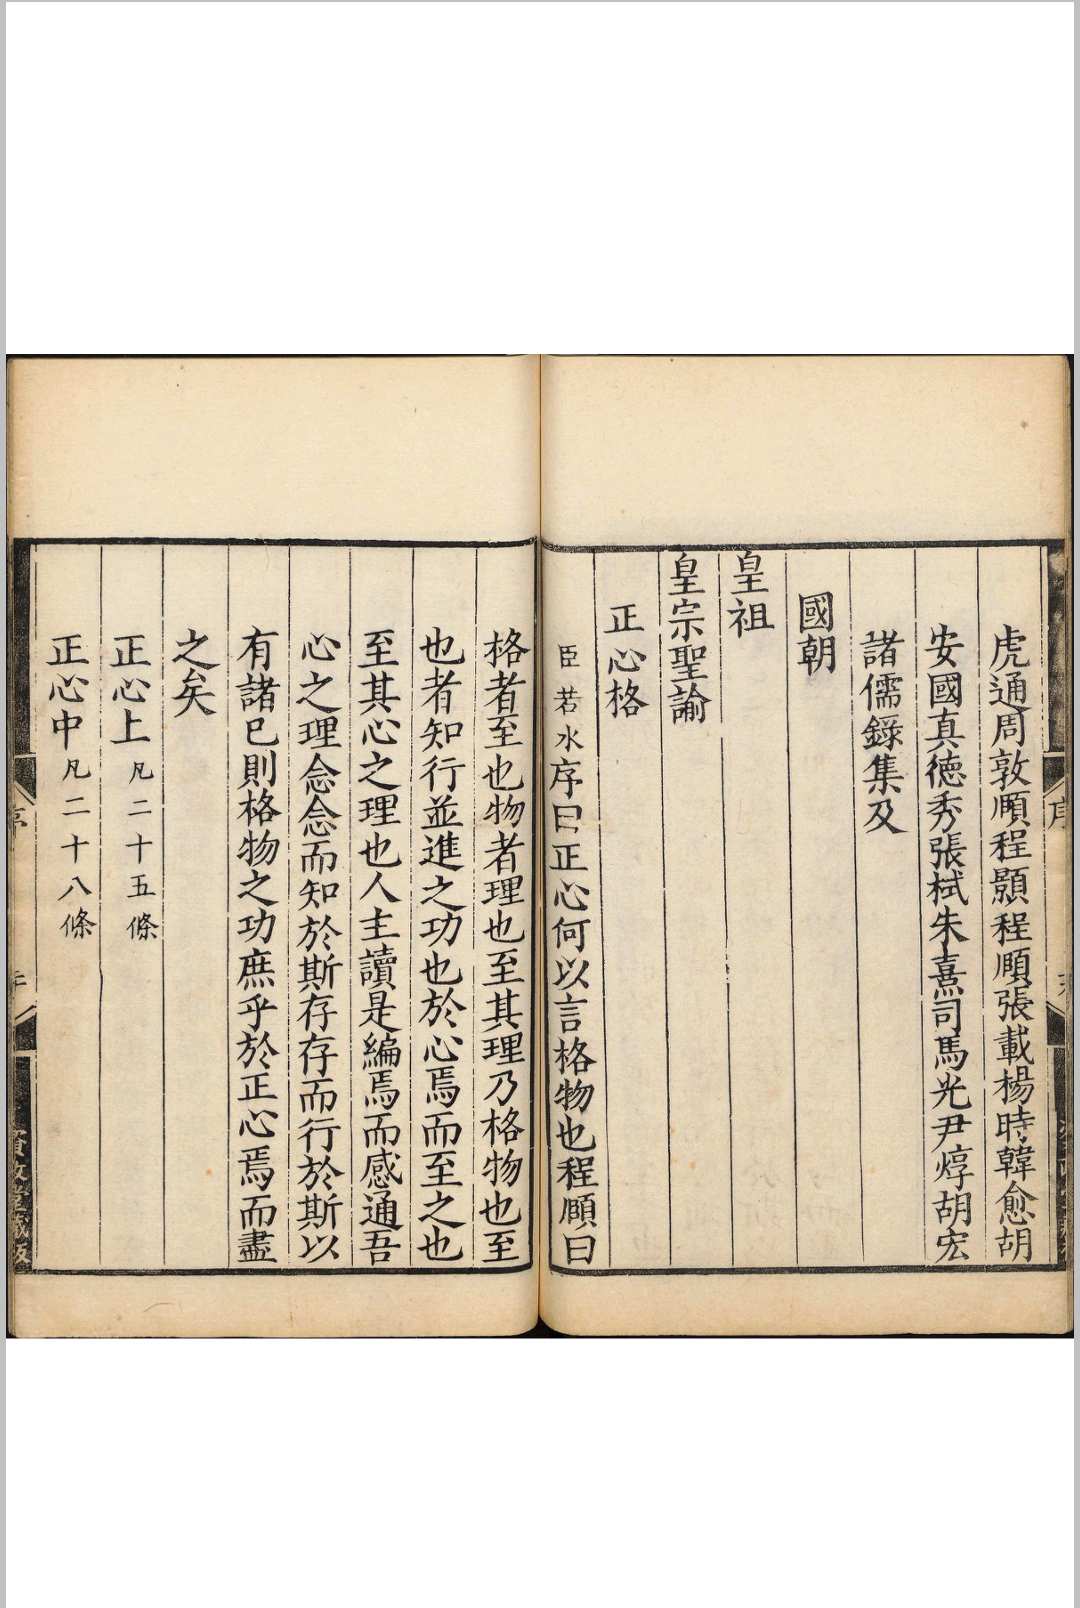 虎通周敦頤程顥程頤張載楊時韓愈胡
安國真德秀張栻朱熹司馬光尹焞胡宏
諸儒錄集及
國朝
皇祖
皇宗聖諭
正心格
臣若水序曰正心何以言格物也程頤曰
格者至也物者理也至其理乃格物也至
也者知行並進之功也於心焉而至之也
至其心之理也人主讀是編焉而感通吾
心之理念念而知於斯存存而行於斯以
有諸已則格物之功庶乎於正心焉而盡
之矣
正心上凡二十五條
正心中凡二十八條
序
序
資政堂藏板